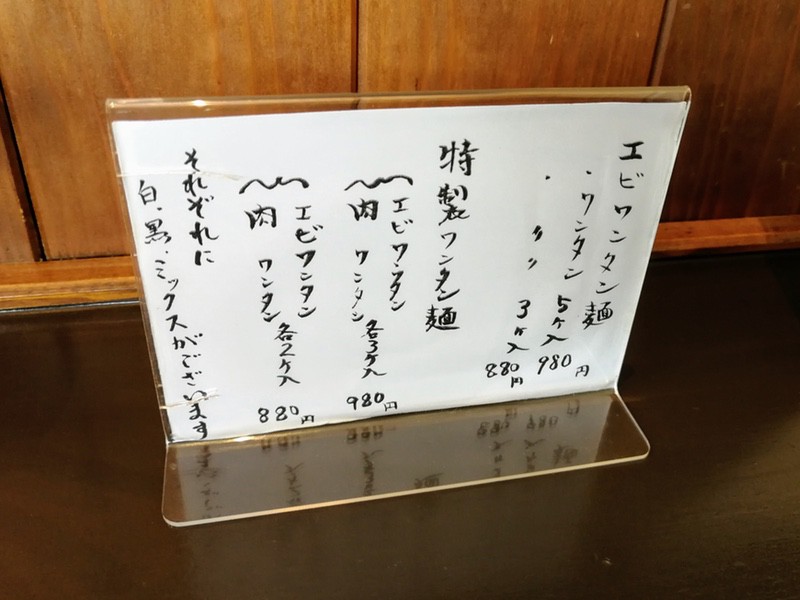 エビワンタン麺
・ワンタン5ヶ入 980円
・〃〃 3ヶ入 880円
特製ワンタン麺
エビワンタン
肉ワンタン 各3ヶ入 980円
エビワンタン
肉ワンタン 各2ヶ入 880円
それぞれに
白、黒、ミックスがございます